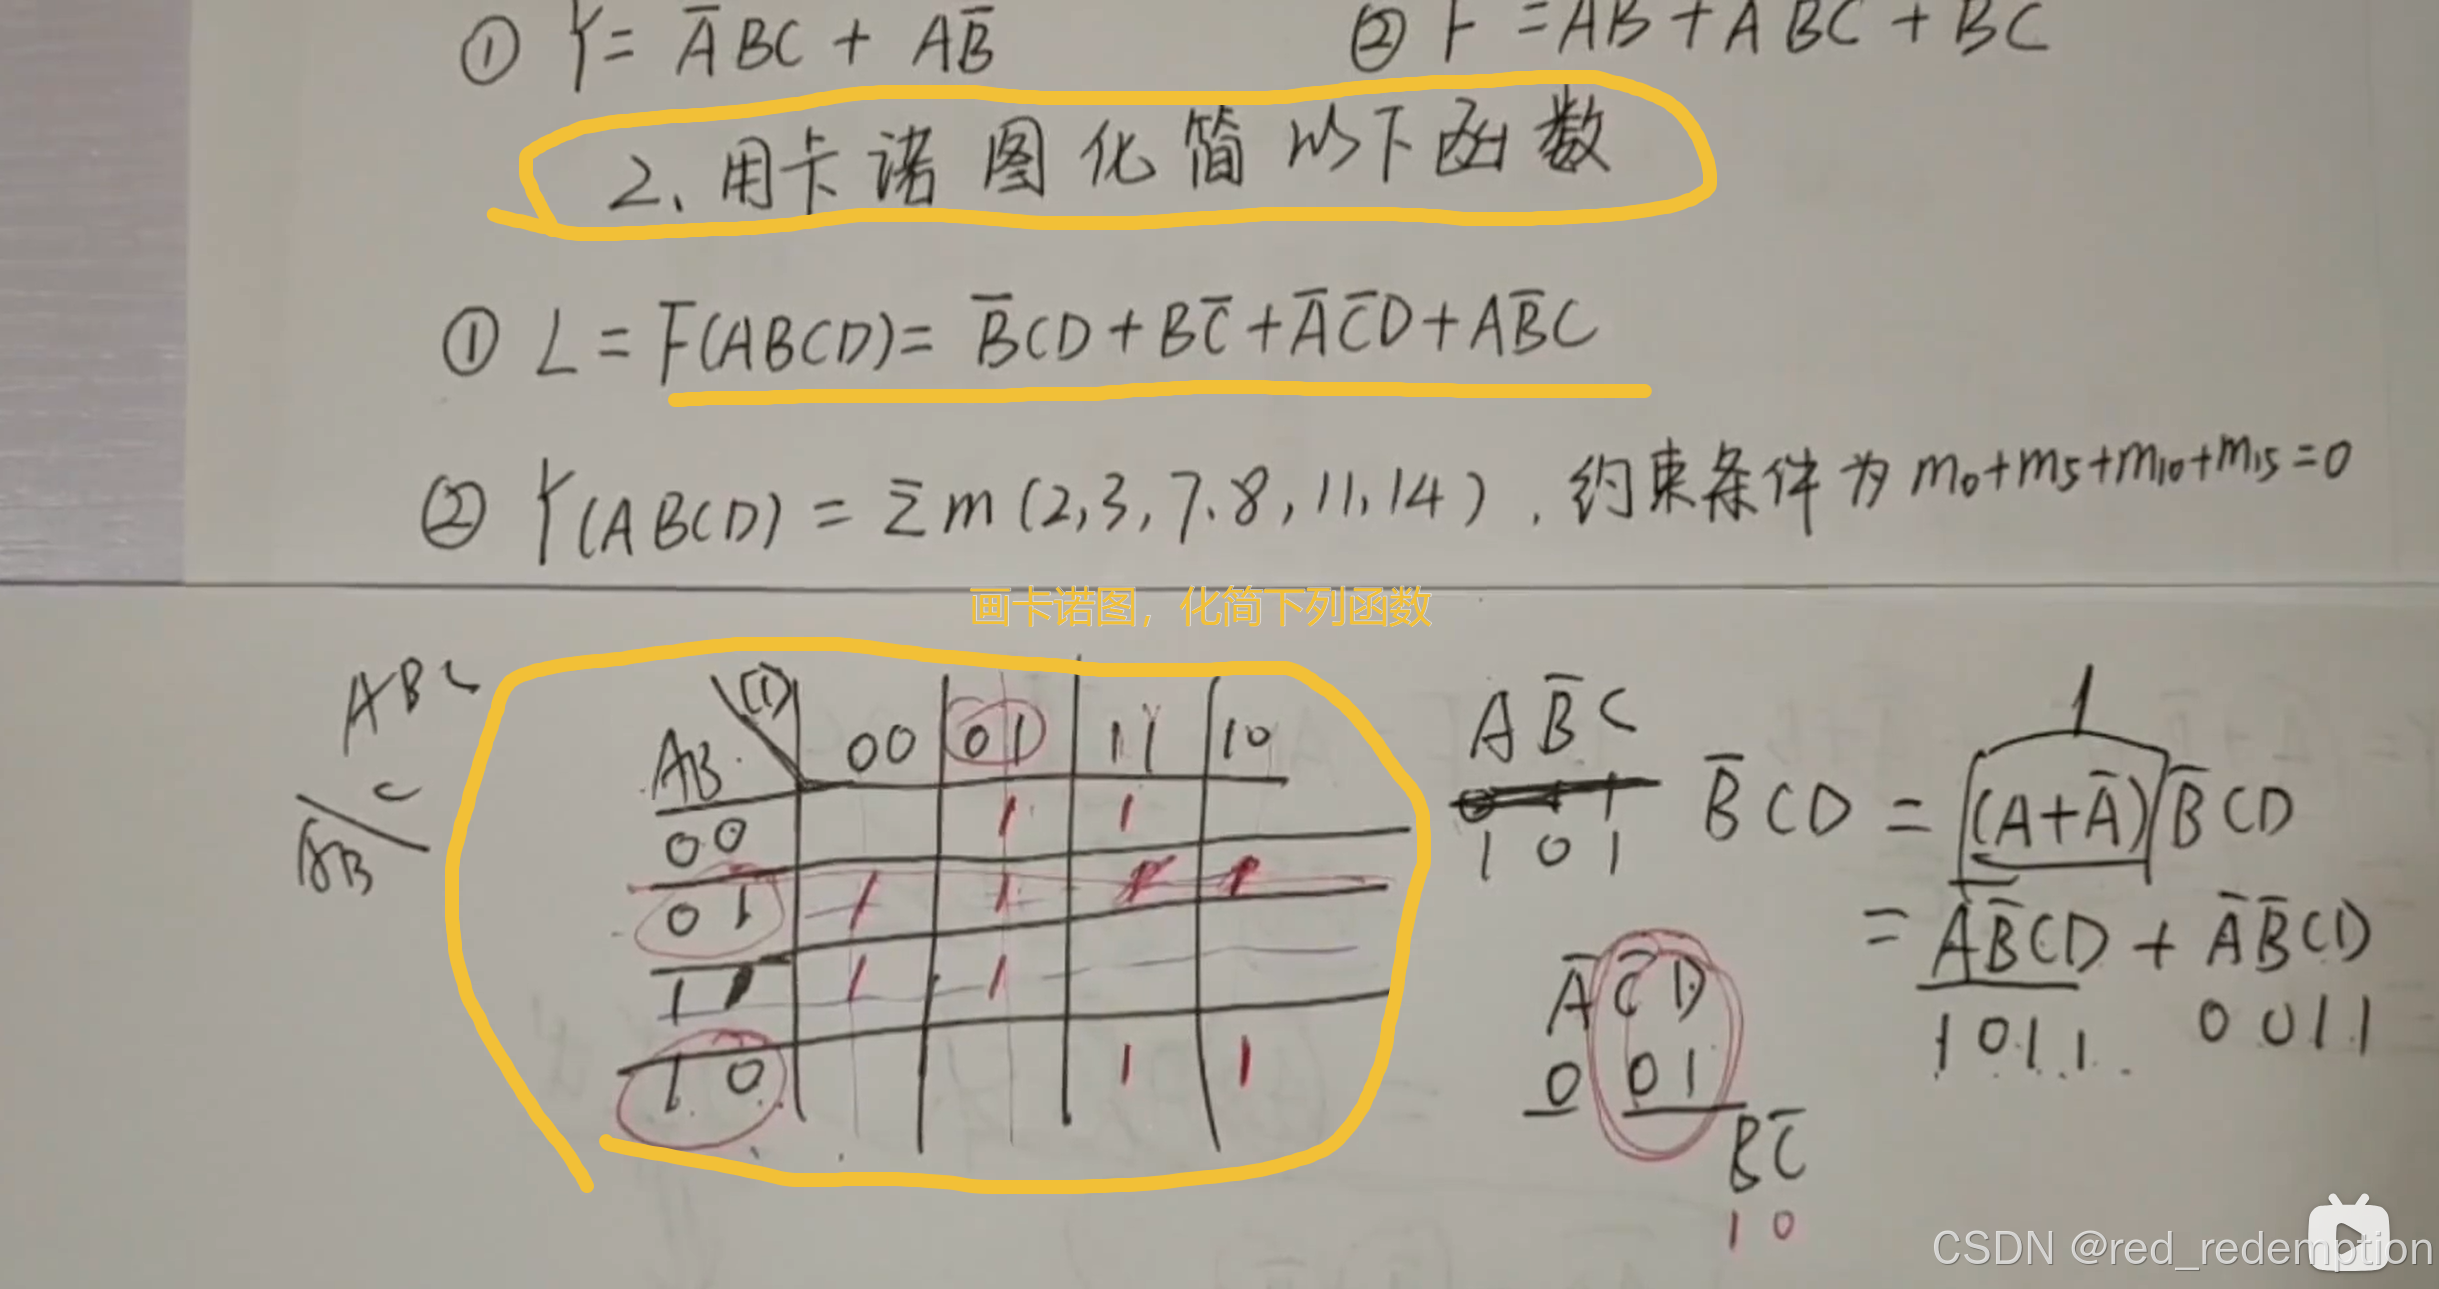 ① Y = A̅BC + AB̅ ② F = AB + ABC + BC
2、用卡诺图化简以下函数
① L = F(ABCD) = B̅CD + BC̅ + A̅C̅D + AB̅C
② Y(ABCD) = Σm(2,3,7,8,11,14), 约束条件为 m₀+m₅+m₁₀+m₁₅=0
画卡诺图，化简下列函数
ABC
C
AB
AB 00 01 11 10
00 1 1
01 1 1
11 1 1
10 1 1
AB̅C
1 0 1
B̅CD = (A+A̅)B̅CD
1
= AB̅CD + A̅B̅CD
1011 0011
A̅C̅D
0 01
BC̅
1 0
CSDN @red_redemption